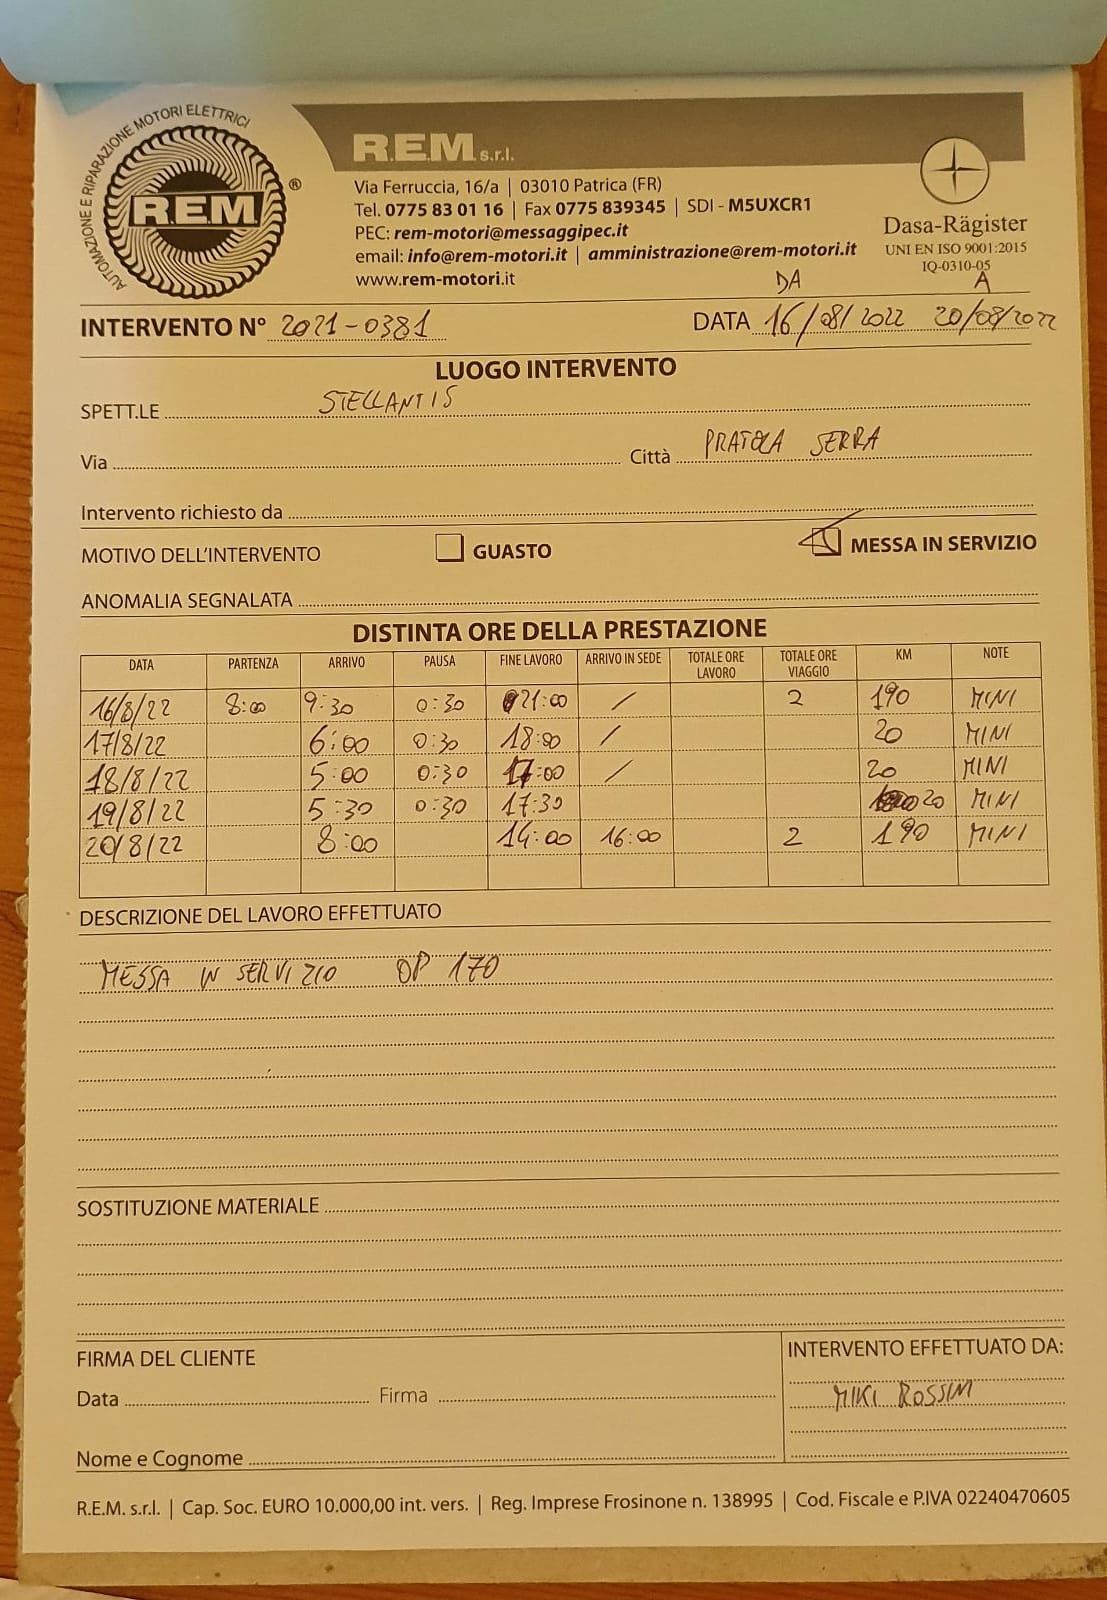 AUTOMAZIONE E RIPARAZIONE MOTORI ELETTRICI
R.E.M. ®
R.E.M. s.r.l.
Via Ferruccia, 16/a | 03010 Patrica (FR)
Tel. 0775 83 01 16 | Fax 0775 839345 | SDI - M5UXCR1
PEC: rem-motori@messaggipec.it
email: info@rem-motori.it | amministrazione@rem-motori.it
www.rem-motori.it
Dasa-Rägister
UNI EN ISO 9001:2015
IQ-0310-05
DA A
INTERVENTO N° 2021-0381 DATA 16/08/2022 20/08/2022
LUOGO INTERVENTO
SPETT.LE STELLANTIS
Via Città PRATOLA SERRA
Intervento richiesto da
MOTIVO DELL'INTERVENTO GUASTO MESSA IN SERVIZIO
ANOMALIA SEGNALATA
DISTINTA ORE DELLA PRESTAZIONE
DATA PARTENZA ARRIVO PAUSA FINE LAVORO ARRIVO IN SEDE TOTALE ORE LAVORO TOTALE ORE VIAGGIO KM NOTE
16/8/22 8:00 9:30 0:30 21:00 / 2 190 MINI
17/8/22 6:00 0:30 18:00 / 20 MINI
18/8/22 5:00 0:30 17:00 / 20 MINI
19/8/22 5:30 0:30 17:30 20 MINI
20/8/22 8:00 14:00 16:00 2 190 MINI
DESCRIZIONE DEL LAVORO EFFETTUATO
MESSA IN SERVIZIO OP 170
SOSTITUZIONE MATERIALE
FIRMA DEL CLIENTE
Data Firma
Nome e Cognome
INTERVENTO EFFETTUATO DA:
MIKI ROSSINI
R.E.M. s.r.l. | Cap. Soc. EURO 10.000,00 int. vers. | Reg. Imprese Frosinone n. 138995 | Cod. Fiscale e P.IVA 02240470605